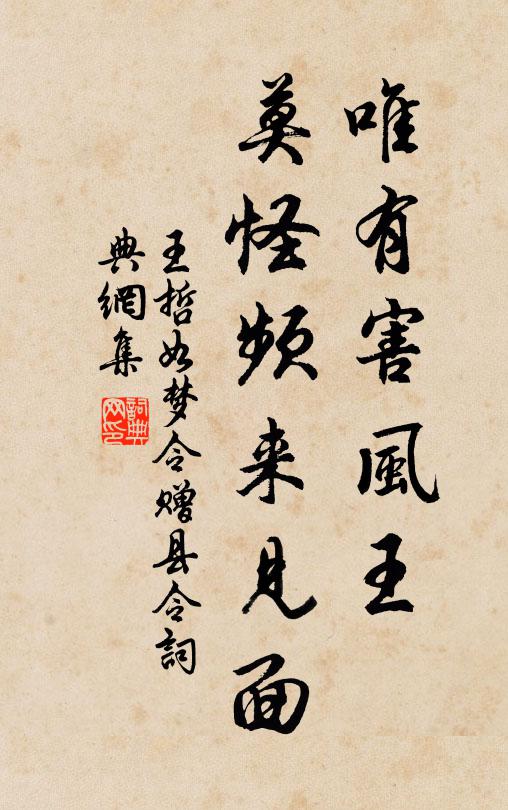 唯有害風王
莫怪频来見面
王哲如梦令赠县令詞
典網集
詞典網印